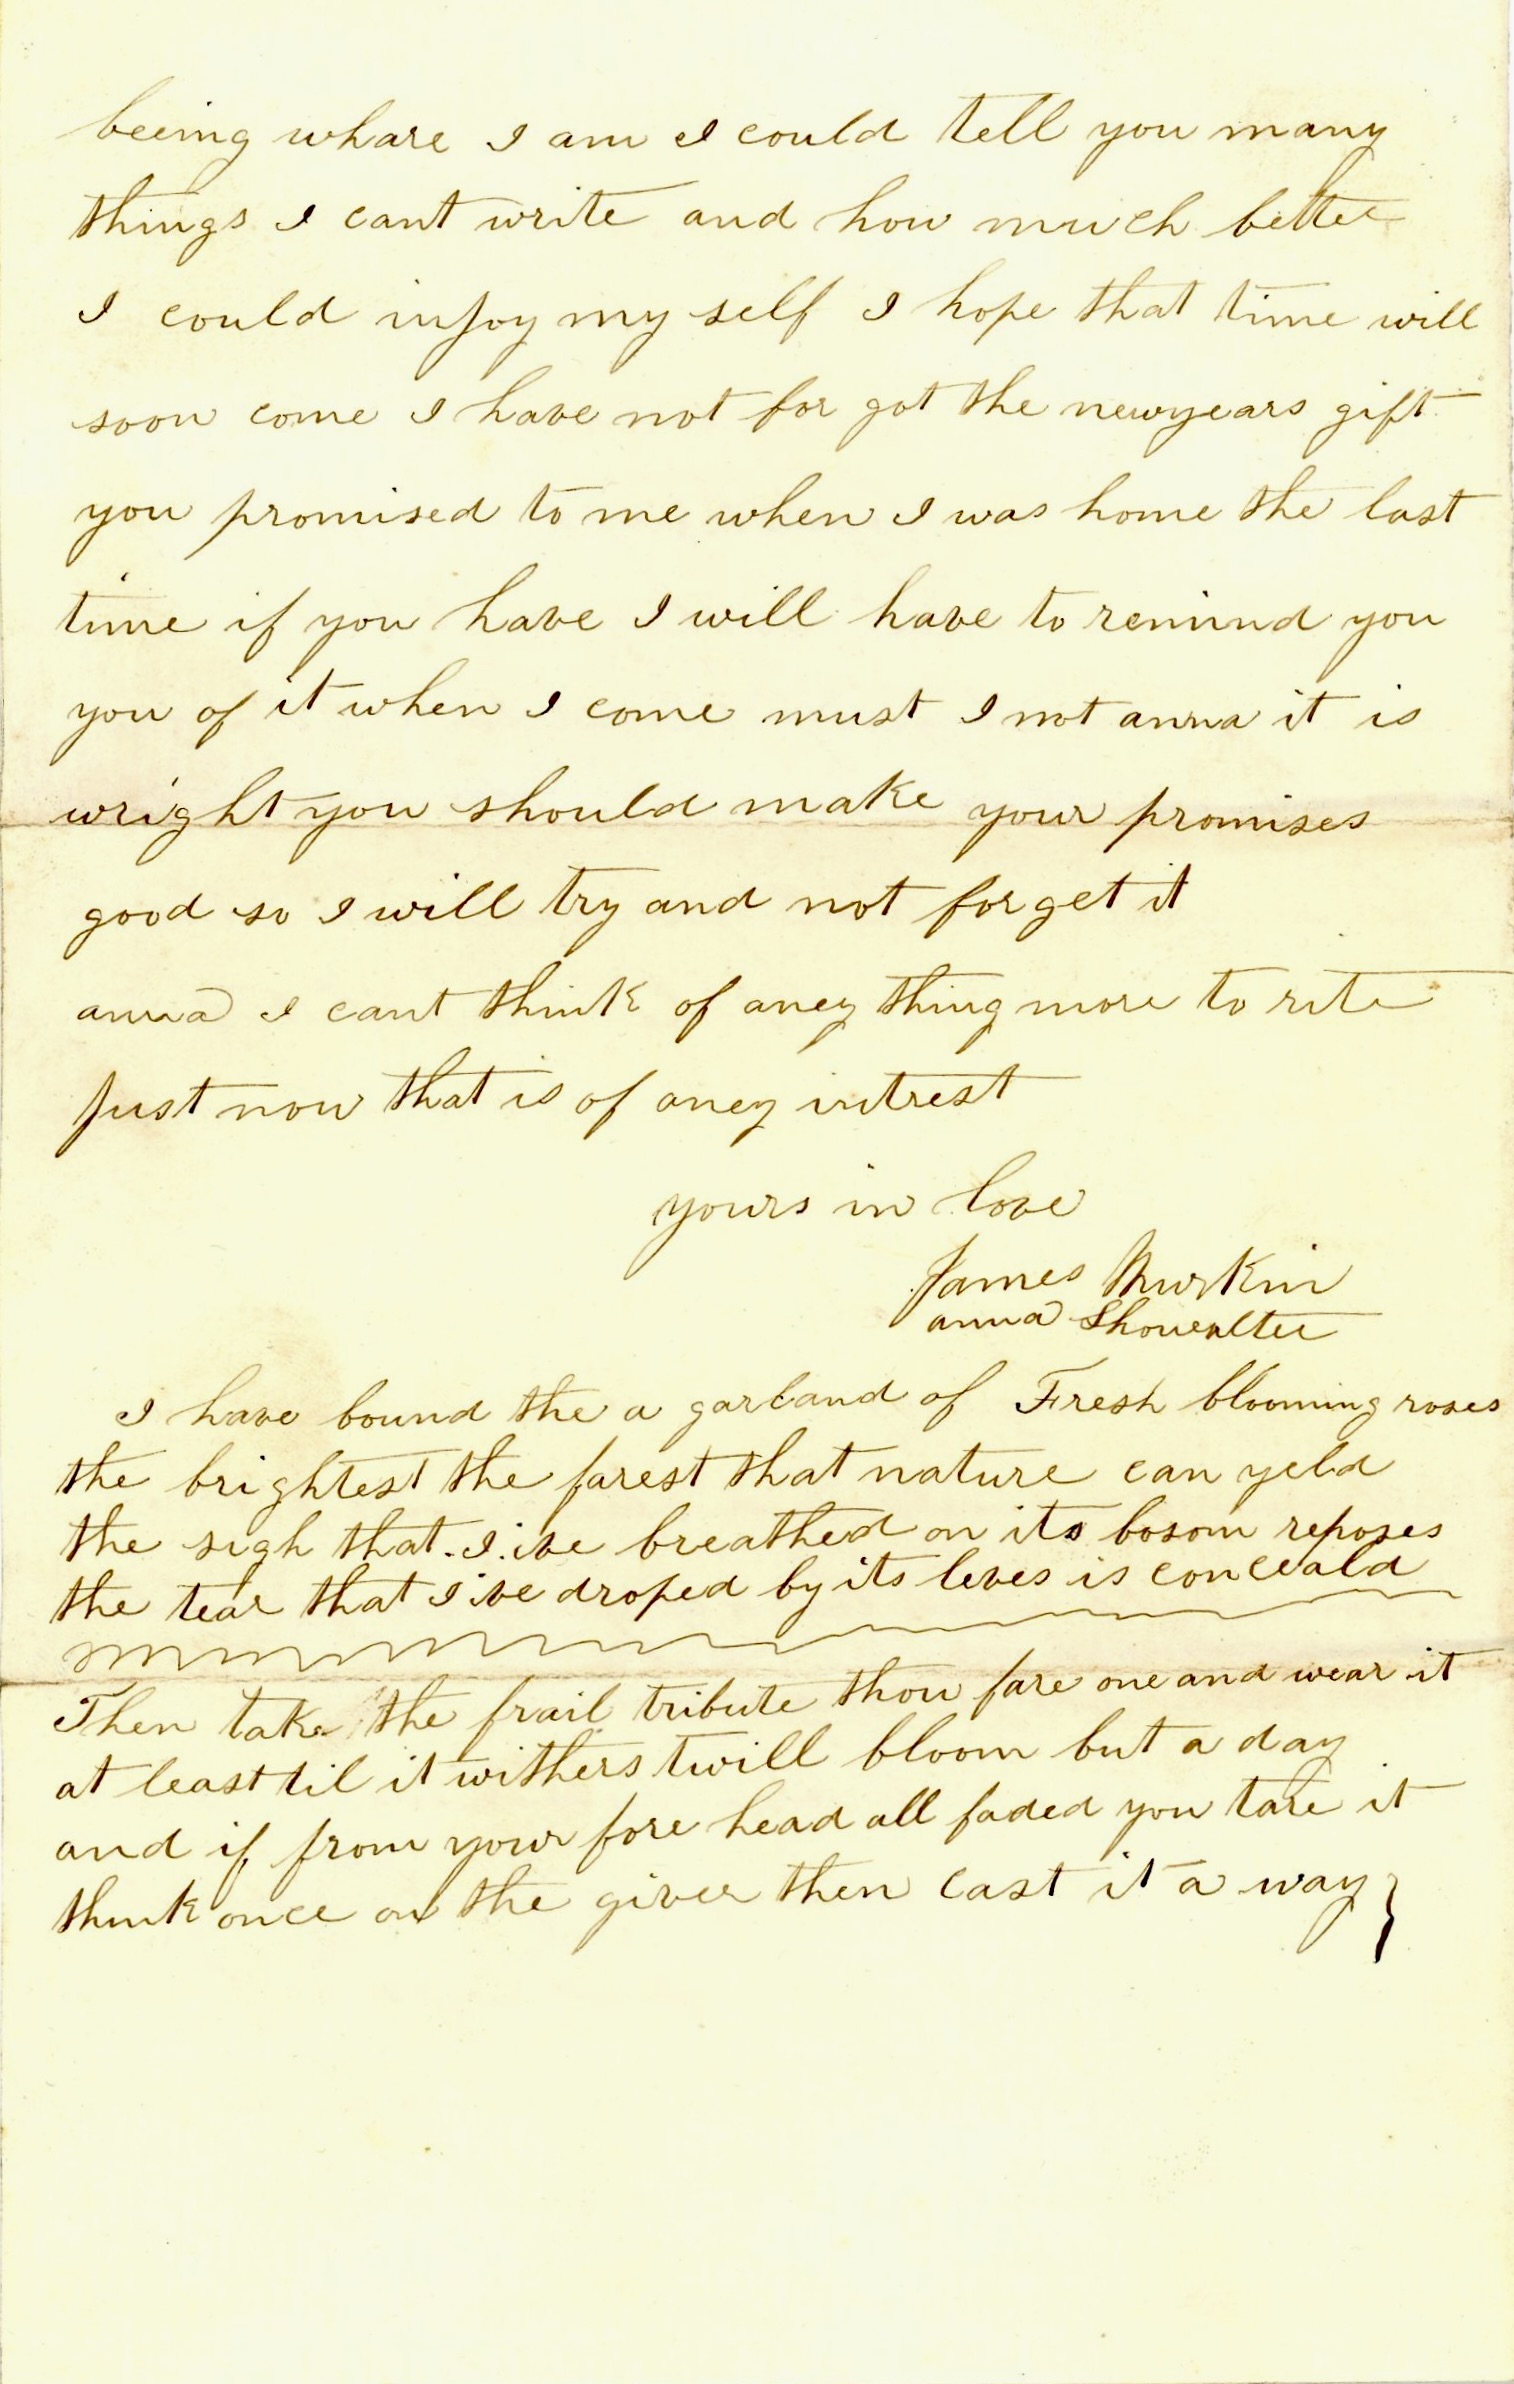 beeing whare I am I could tell you many
things I cant write and how much better
I could injoy my self I hope that time will
soon come I have not for got the newyears gift
you promised to me when I was home the last
time if you have I will have to remind you
you of it when I come must I not anna it is
wright you should make your promises
good so I will try and not forget it
anna I cant think of aney thing more to rite
Just now that is of aney intrest
yours in love
James
anna Showalter
I have bound the a garland of Fresh blooming roses
the brightest the farest that nature can yeld
the sigh that I ive breathed on its bosom reposes
the tear that I ive droped by its leves is conceald
Then take the frail tribute thou fare one and wear it
at least til it withers twill bloom but a day
and if from your fore head all faded you tare it
think once on the giver then cast it a way